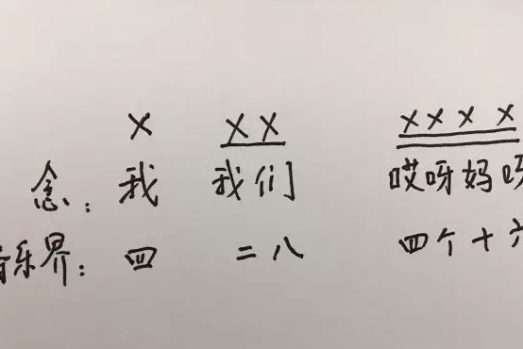 X XX XXXX
念: 我 我们 哎呀妈呀
音乐界: 四 二八 四个十六